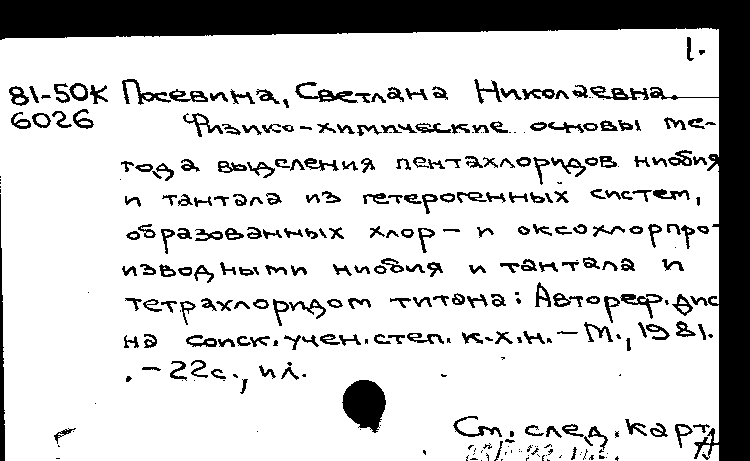 1.
81-50К Посевина, Светлана Николаевна.
6026 Физико-химические основы ме-
тода выделения пентахлоридов ниобия
и тантала из гетерогенных систем,
образованных хлор- и оксохлорпро-
изводными ниобия и тантала и
тетрахлоридом титана: Автореф. дис
на соиск. учен. степ. к.х.н. - М., 1981.
. - 22с., ил.
См. след. карт